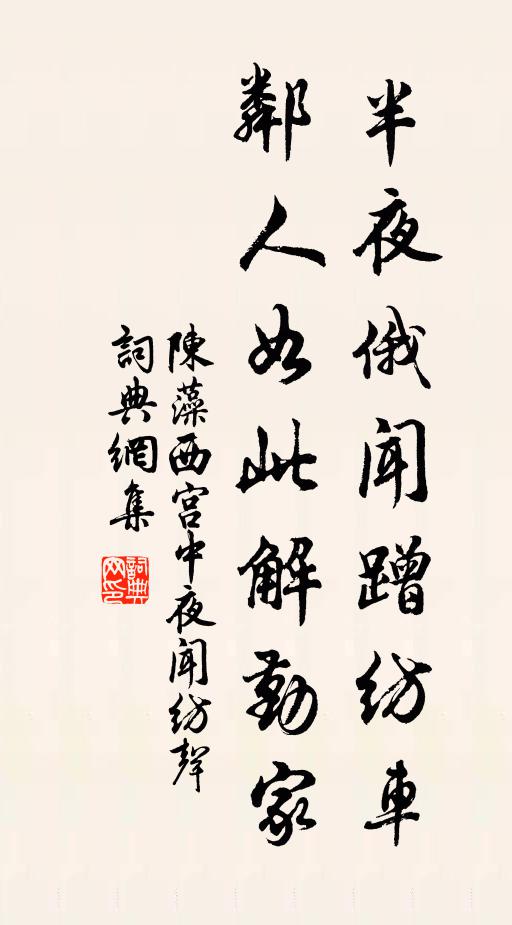 半夜俄闻蹭纺車
鄰人如此解勤家
陳藻西宫中夜闻纺聲
詞典網集
詞典网印